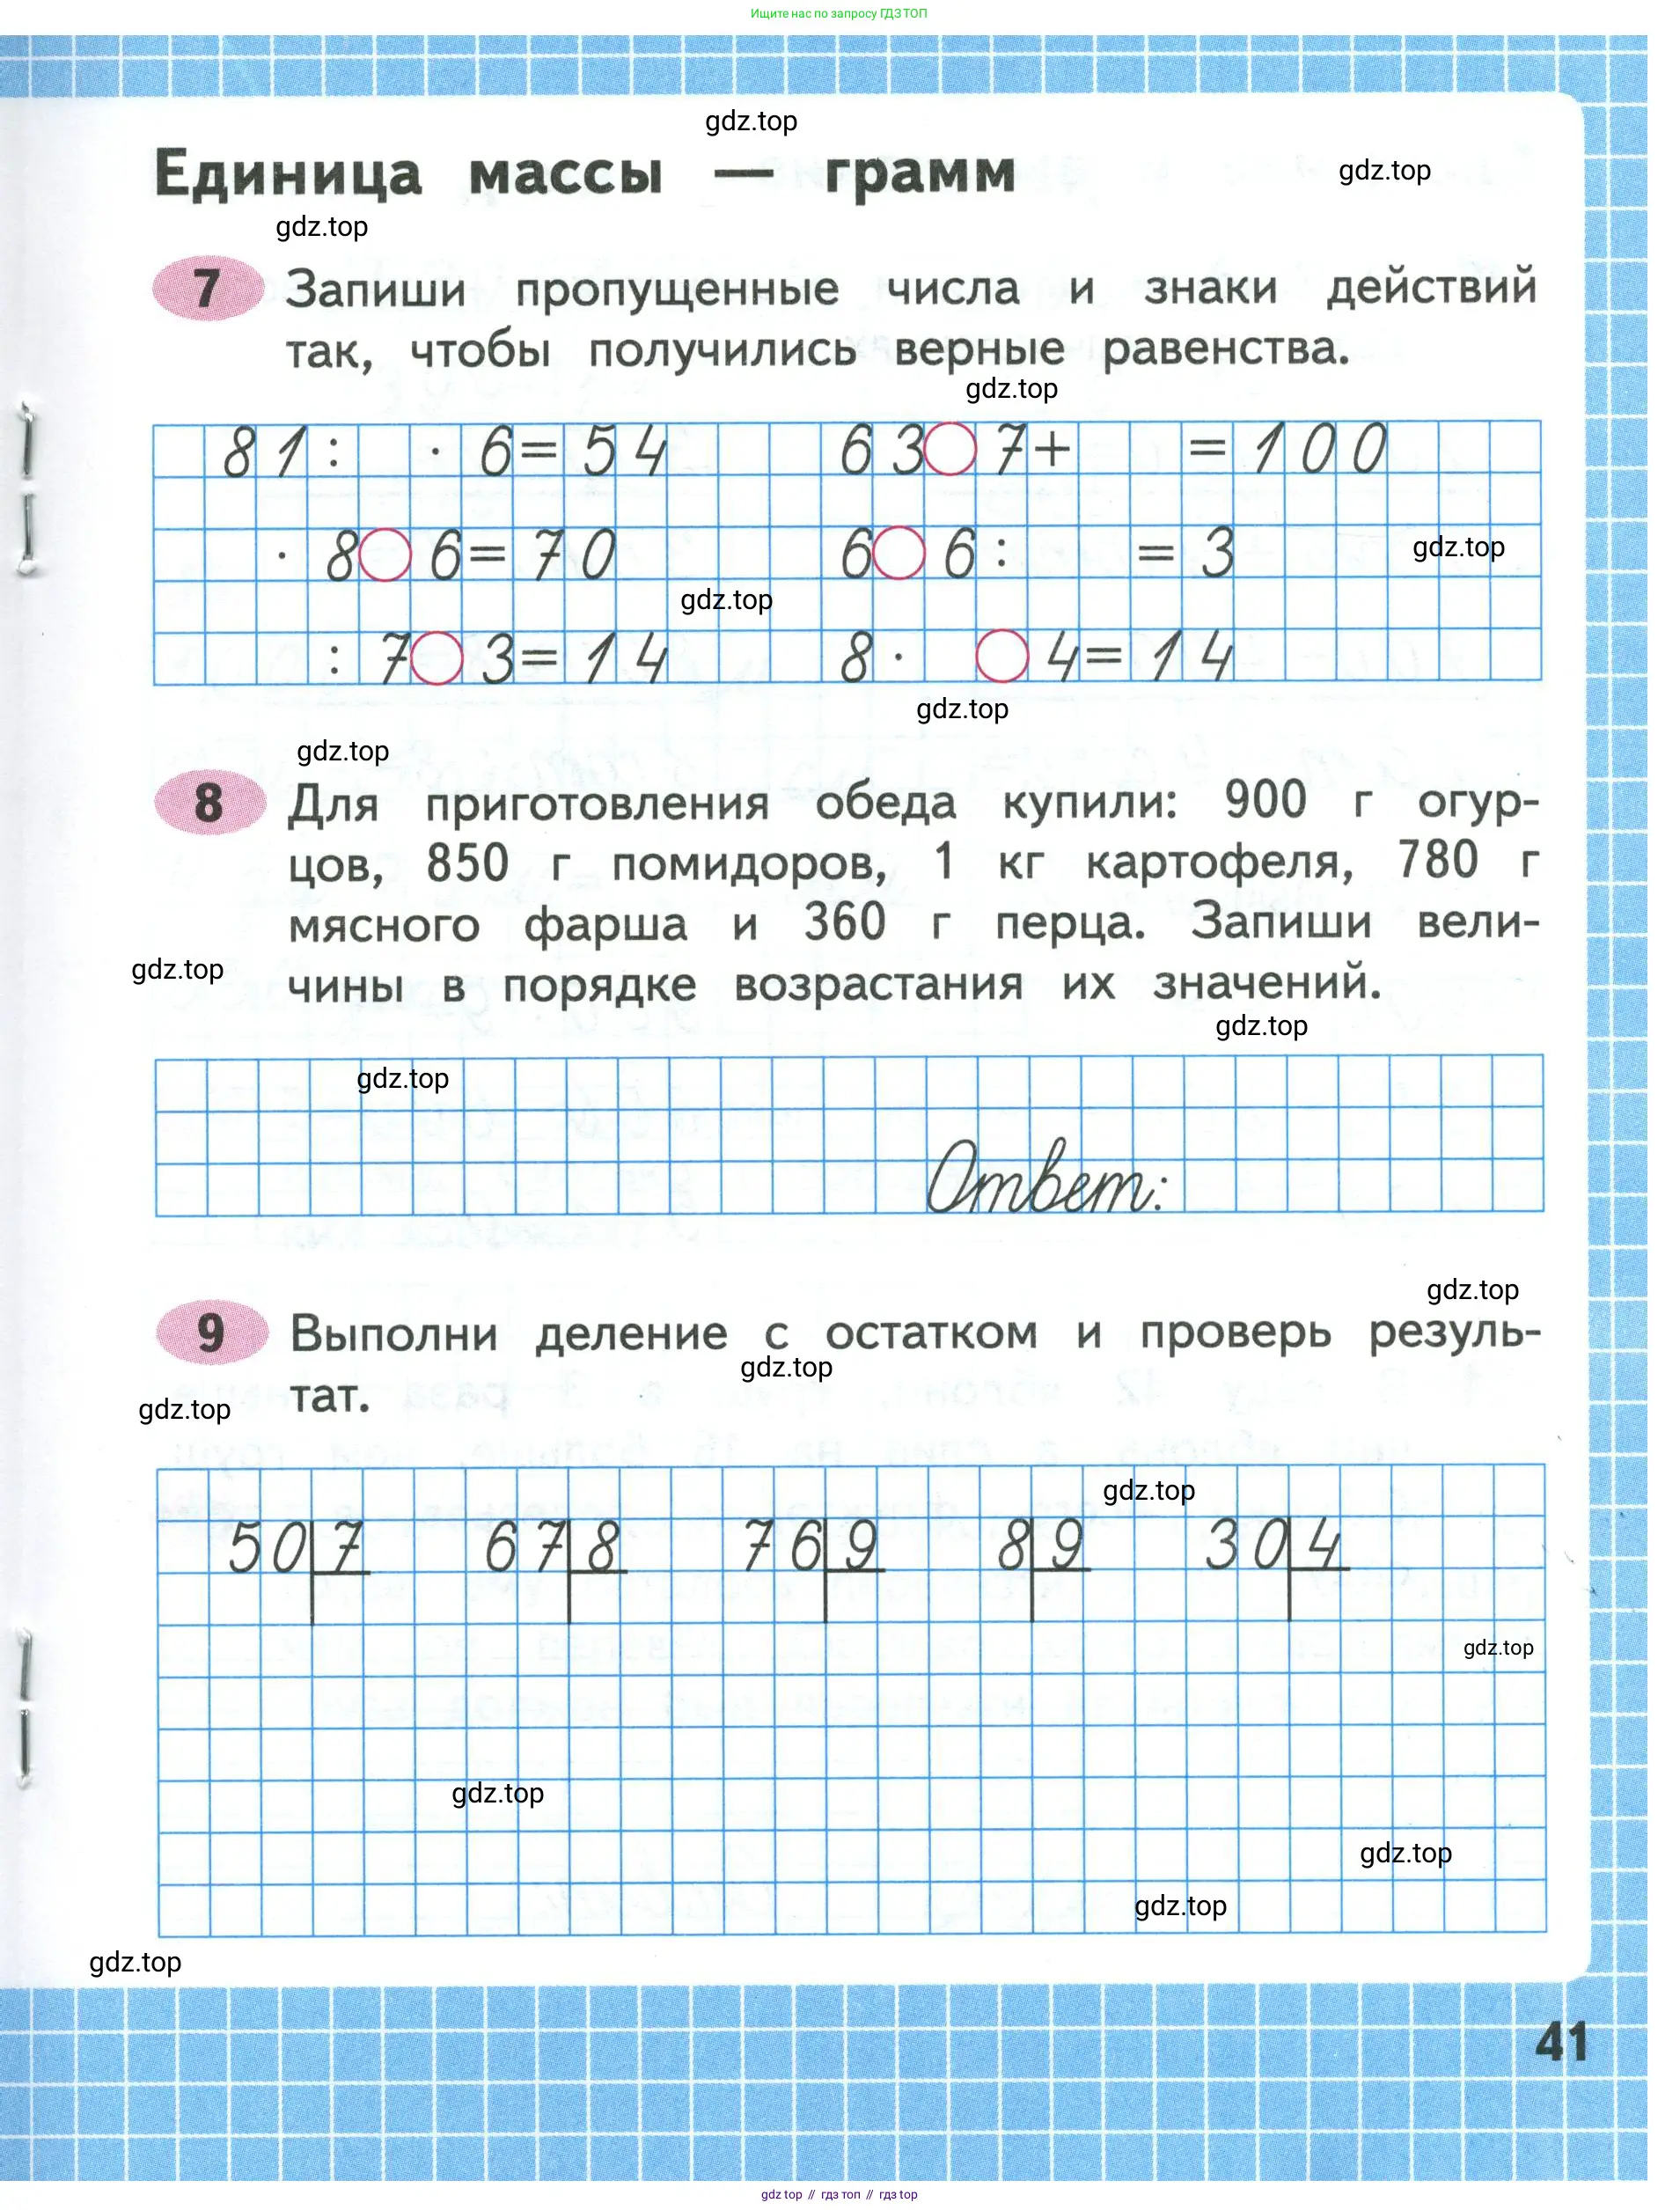 Ищите нас по запросу ГДЗ ТОП
gdz.top
Единица массы — грамм
gdz.top
gdz.top
7 Запиши пропущенные числа и знаки действий
так, чтобы получились верные равенства.
gdz.top
81: · 6=54 63 7+ =100
· 8 6=70 6 6: =3
gdz.top
gdz.top
: 7 3=14 8· 4=14
gdz.top
gdz.top
8 Для приготовления обеда купили: 900 г огур-
цов, 850 г помидоров, 1 кг картофеля, 780 г
мясного фарша и 360 г перца. Запиши вели-
gdz.top
чины в порядке возрастания их значений.
gdz.top
gdz.top
Ответ:
gdz.top
9 Выполни деление с остатком и проверь резуль-
gdz.top
тат.
gdz.top
gdz.top
50 7 67 8 76 9 8 9 30 4
gdz.top
gdz.top
gdz.top
gdz.top
gdz.top
41
gdz top // гдз топ // гдз top